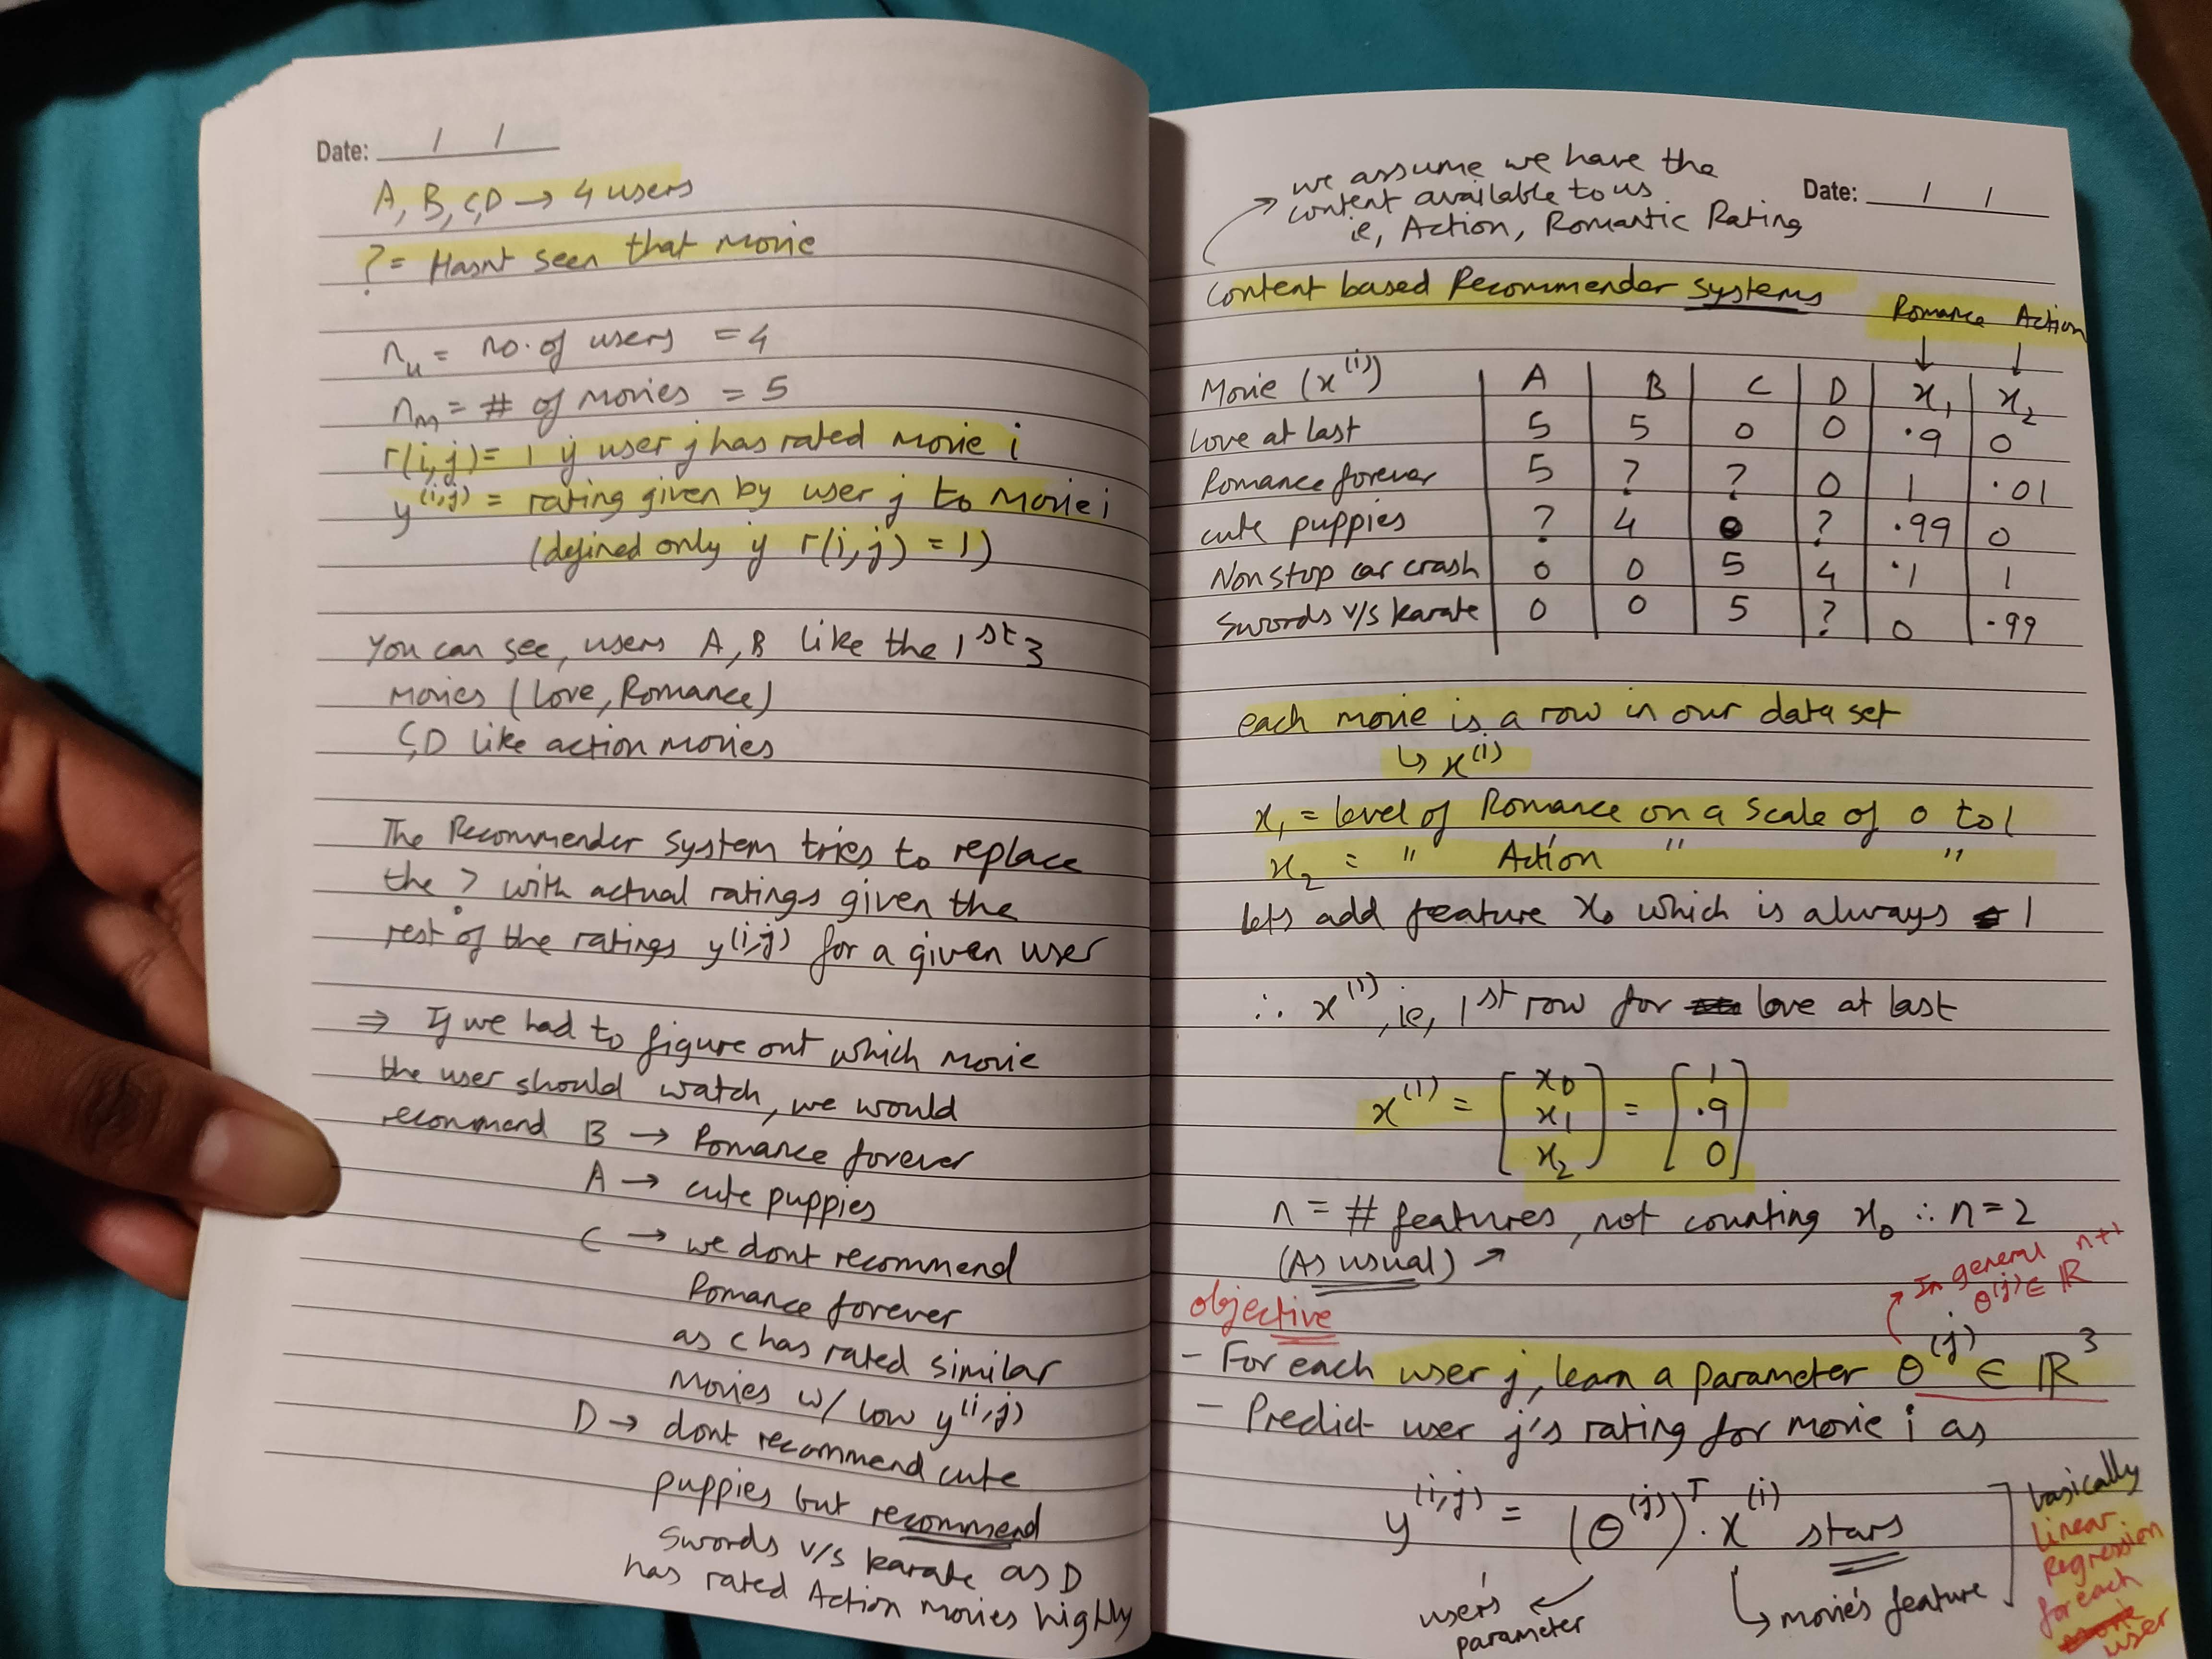 Date: / /
A, B, C, D → 4 users
? = Hasnt seen that movie
n_u = no. of users = 4
n_m = # of movies = 5
r(i,j) = 1 if user j has rated movie i
y^(i,j) = rating given by user j to movie i
(defined only if r(i,j) = 1)
You can see, users A, B like the 1st 3
movies (Love, Romance)
C, D like action movies
The Recommender system tries to replace
the ? with actual ratings given the
rest of the ratings y^(i,j) for a given user
⇒ If we had to figure out which movie
the user should watch, we would
recommend B → Romance forever
A → cute puppies
C → we dont recommend
Romance forever
as C has rated similar
movies w/ low y^(i,j)
D → dont recommend cute
puppies but recommend
Swords v/s karate as D
has rated Action movies highly
we assume we have the
content available to us
ie, Action, Romantic Rating
Date: / /
Content based Recommender Systems
Romance Action
↓ ↓
Movie (x^(i)) A B C D x_1 x_2
Love at last 5 5 0 0 .9 0
Romance forever 5 ? ? 0 1 .01
cute puppies ? 4 0 ? .99 0
Nonstop car crash 0 0 5 4 .1 1
Swords v/s karate 0 0 5 ? 0 .99
each movie is a row in our data set
↳ x^(i)
x_1 = level of Romance on a scale of 0 to 1
x_2 = " Action " "
lets add feature x_0 which is always 1
∴ x^(1), ie, 1st row for love at last
x^(1) = [x_0 x_1 x_2] = [1 .9 0]
n = # features, not counting x_0 ∴ n = 2
(As usual) ↗
In general
θ^(j) ∈ R^n+1
objective
- For each user j, learn a parameter θ^(j) ∈ R^3
- Predict user j's rating for movie i as
y^(i,j) = (θ^(j))^T . x^(i) stars
user's
parameter
↳ movie's feature
basically
linear
Regression
for each
user